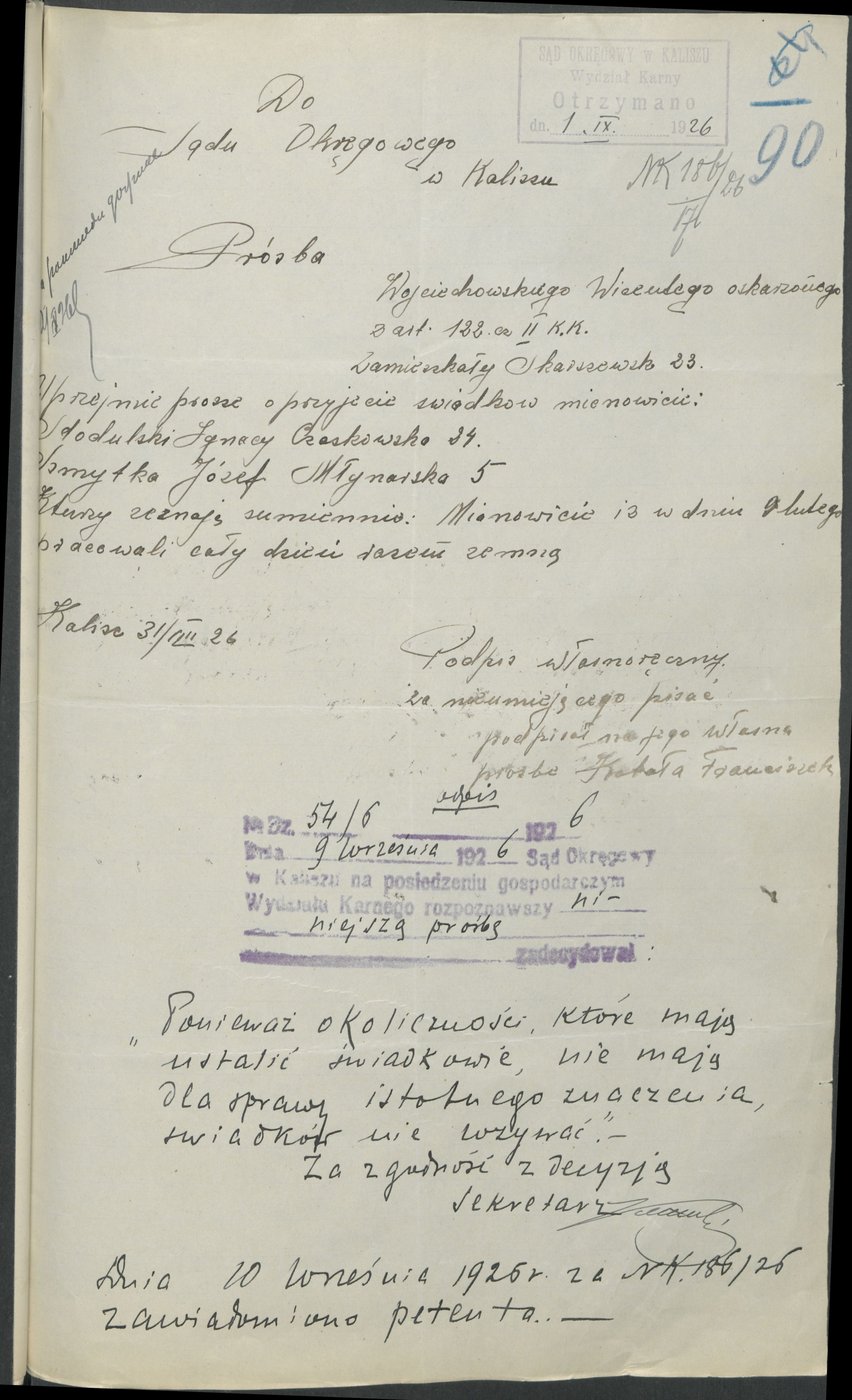 SĄD OKRĘGOWY w KALISZU
Wydział Karny
Otrzymano
dn. 1. IX. 1926
90
NK 186/26
Do
Sądu Okręgowego
w Kaliszu
Prósba
Wojciechowskiego Wiscutego oskarzonego
z art. 122. cz II K.K.
Zamieszkały Skarszewsk 23.
Uprzejmie prosze o przyjęcie swiadkow mienowicie:
Stodulski Ignacy Czaskowska 24.
Smytka Józef Młynarska 5
Kturzy zeznają sumiennie: Mianowicie iz w dniu 9 lutego
pracowali cały dzień razem zemną
Kalisz 31/VIII 26
Podpis własnoręczny
za nieumiejącego pisać
podpisał na jego własną
prosbe Franciszek
odpis
№ Dz. 54/6 1926
Dnia 9 Września 1926 Sąd Okręgowy
w Kaliszu na posiedzeniu gospodarczym
Wydziału Karnego rozpoznawszy ni-
niejszą prośbę
zadecydował:
„Ponieważ okoliczności, które mają
ustalić świadkowie, nie mają
dla sprawy istotnego znaczenia,
swiadków nie wzywać".-
Za zgodność z decyzją
Sekretarz
Dnia 10 Września 1926 r. za NK. 186/26
zawiadomiono petenta..—